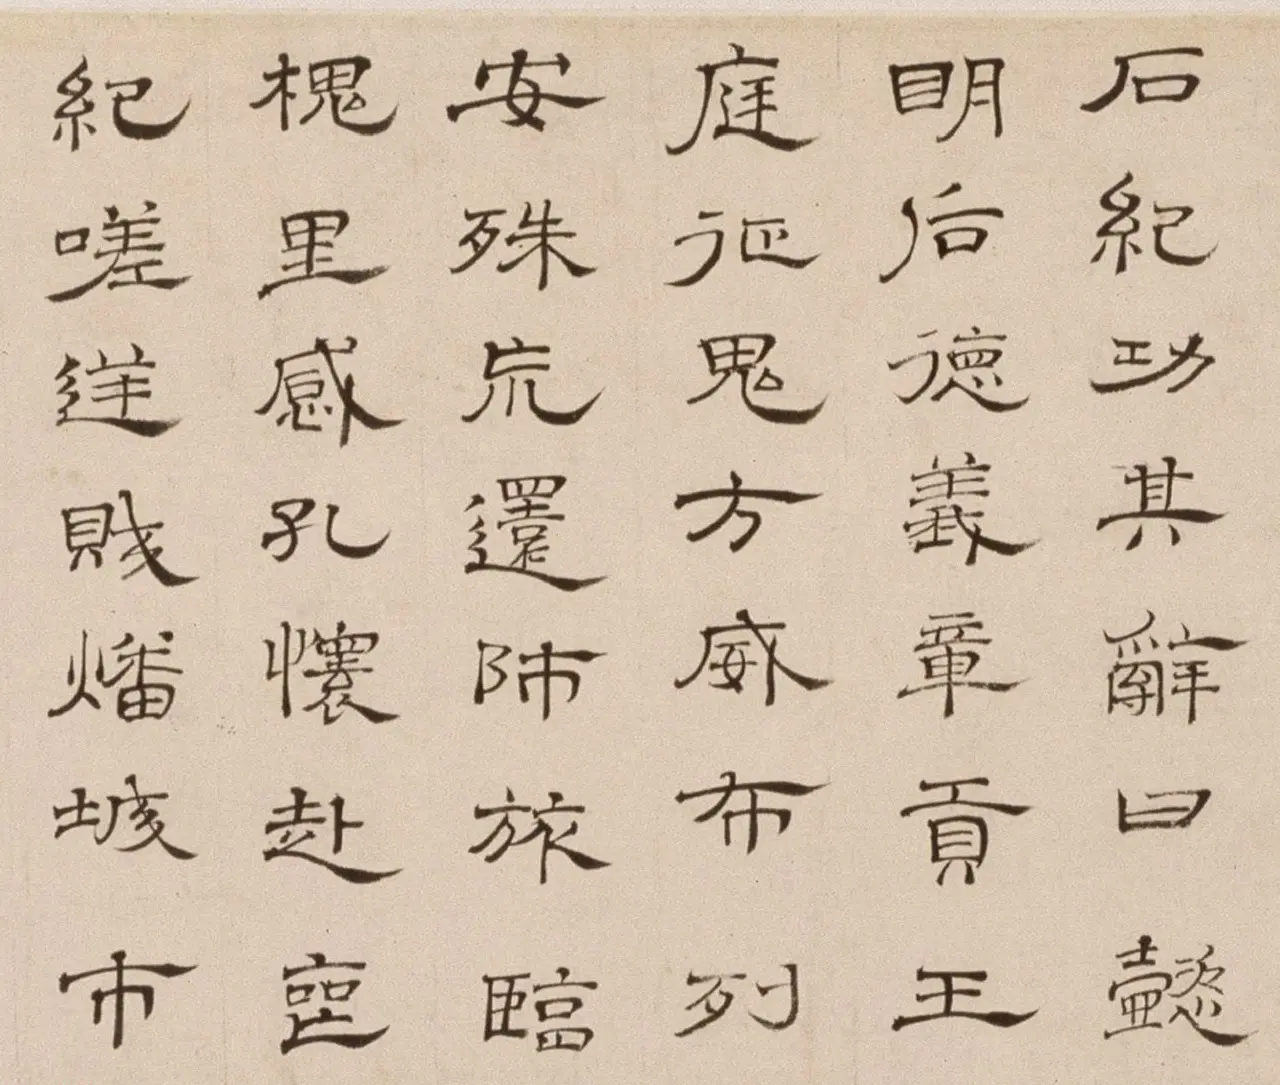 石紀功其辭曰懿
明后德義章貢王
庭征鬼方威布列
安殊巟還師旅臨
槐里感孔懷赴喪
紀嗟逆賊燔城市